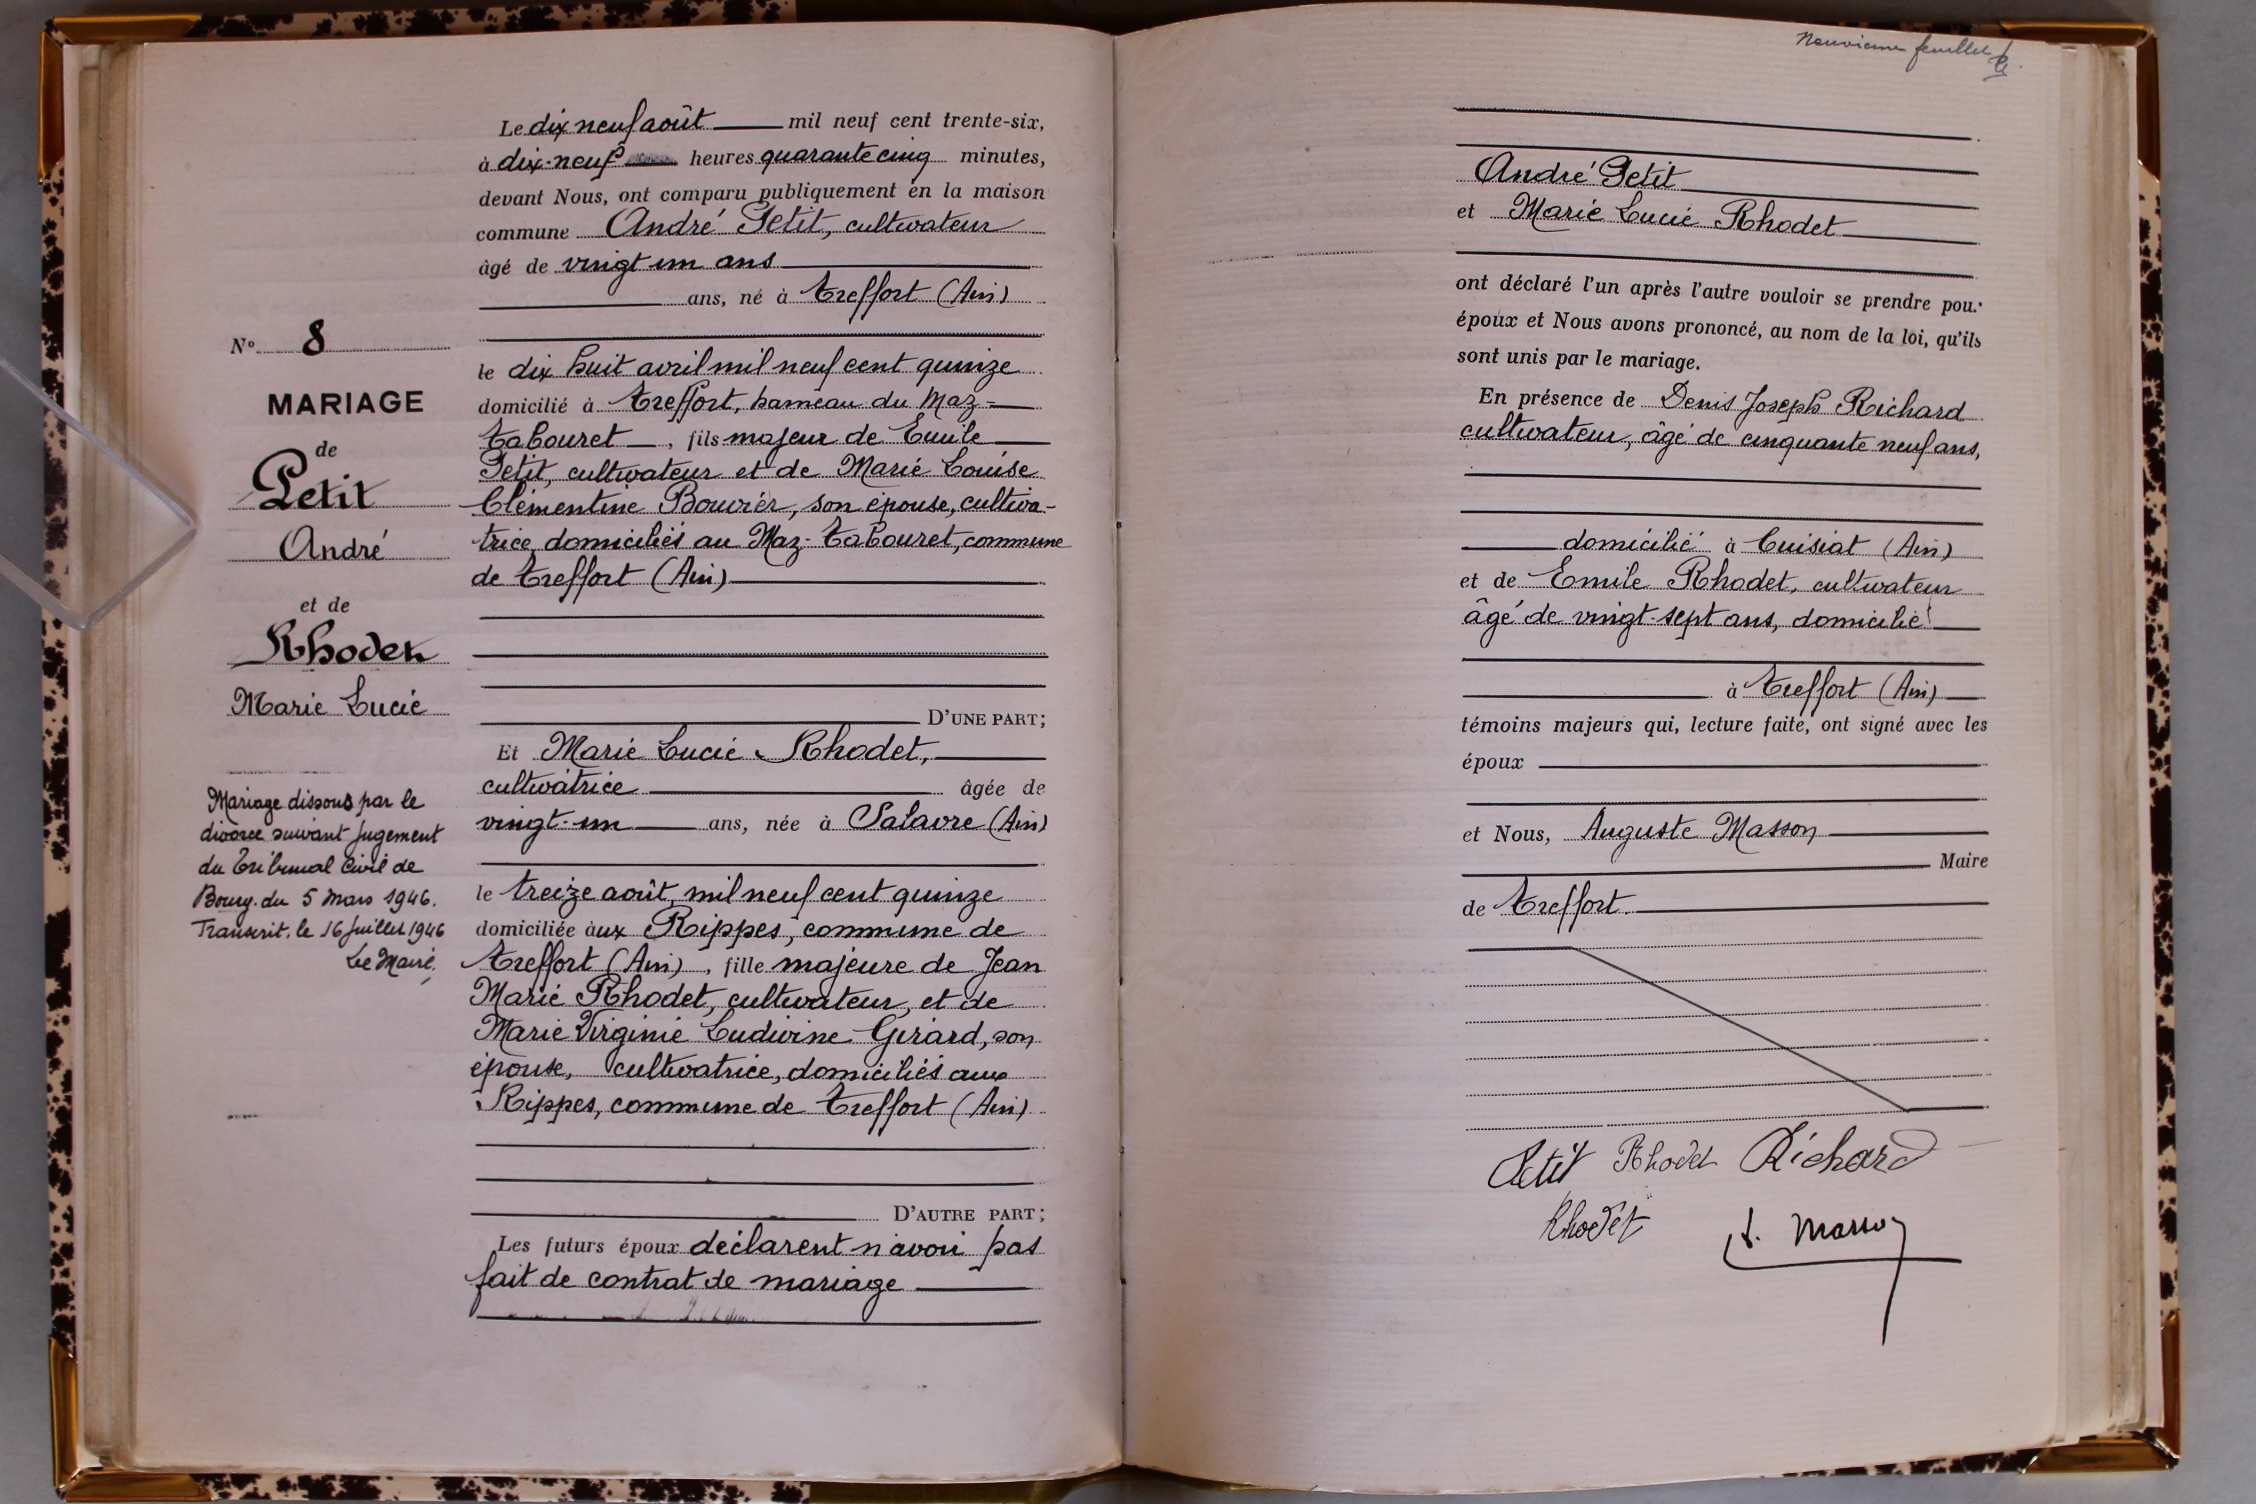 Neuvième feuillet
N° 8
MARIAGE
de
Petit
André
et de
Rhodet
Marie Lucie
Mariage dissous par le
divorce suivant jugement
du Tribunal Civil de
Bourg. du 5 Mars 1946.
Transcrit. le 16 Juillet 1946
Le Maire,
Le dix neuf août mil neuf cent trente-six,
à dix-neuf heures quarante cinq minutes,
devant Nous, ont comparu publiquement en la maison
commune André Petit, cultivateur
âgé de vingt un ans
ans, né à Treffort (Ain)
le dix huit avril mil neuf cent quinze
domicilié à Treffort, hameau du Maz-
Tabouret, fils majeur de Emile
Petit, cultivateur et de Marie Louise
Clémentine Bouvier, son épouse, cultiva-
trice, domiciliés au Maz-Tabouret, commune
de Treffort (Ain)
D'UNE PART;
Et Marie Lucie Rhodet,
cultivatrice âgée de
vingt-un ans, née à Salavre (Ain)
le treize août mil neuf cent quinze
domiciliée àux Rippes, commune de
Treffort (Ain), fille majeure de Jean
Marie Rhodet, cultivateur, et de
Marie Virginie Ludivine Girard, son
épouse, cultivatrice, domiciliés aux
Rippes, commune de Treffort (Ain)
D'AUTRE PART;
Les futurs époux déclarent n'avoir pas
fait de contrat de mariage
André Petit
et Marie Lucie Rhodet
ont déclaré l'un après l'autre vouloir se prendre pour
époux et Nous avons prononcé, au nom de la loi, qu'ils
sont unis par le mariage.
En présence de Denis Joseph Richard
cultivateur, âgé de cinquante neuf ans,
domicilié à Cuisiat (Ain)
et de Emile Rhodet, cultivateur
âgé de vingt-sept ans, domicilié
à Treffort (Ain)
témoins majeurs qui, lecture faite, ont signé avec les
époux
et Nous, Auguste Masson
Maire
de Treffort.
Petit Rhodet Richard
Rhodet A. Masson